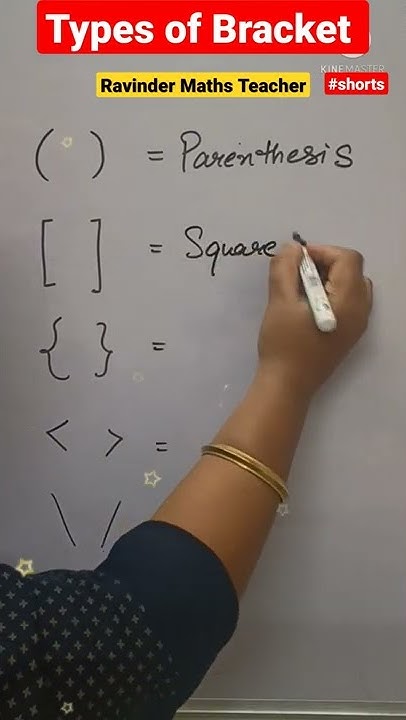 Types of Bracket
KINEMASTER
Ravinder Maths Teacher #shorts
( ) = Parenthesis
[ ] = Square
{ } =
< > =
\ /